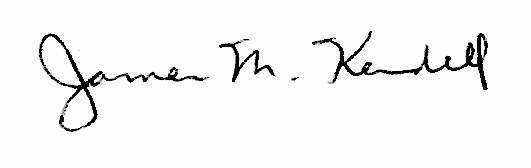 James M. Kendell